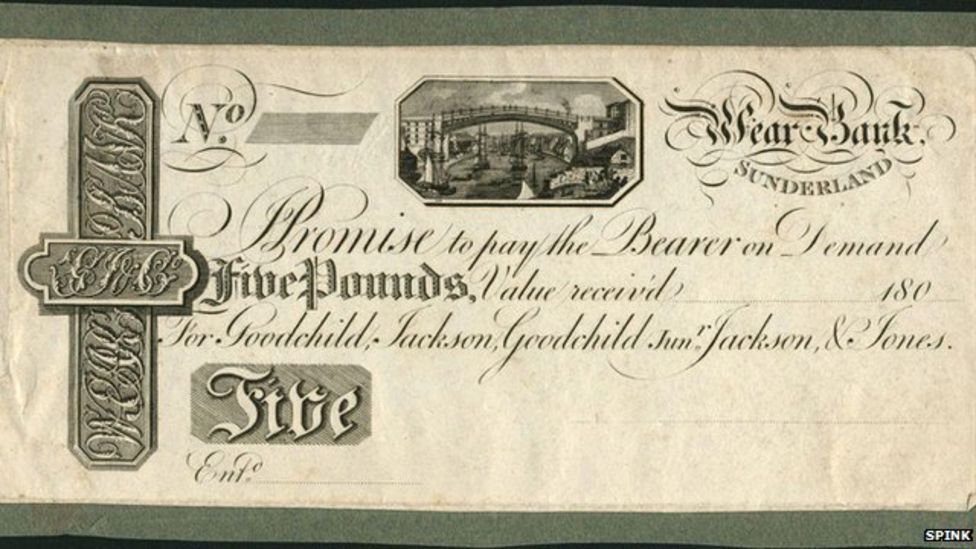 No.
Wear Bank.
SUNDERLAND
I Promise to pay the Bearer on Demand
Five Pounds, Value receiv'd 180
For Goodchild, Jackson, Goodchild Junr. Jackson, & Jones.
Five
Entd.
SPINK